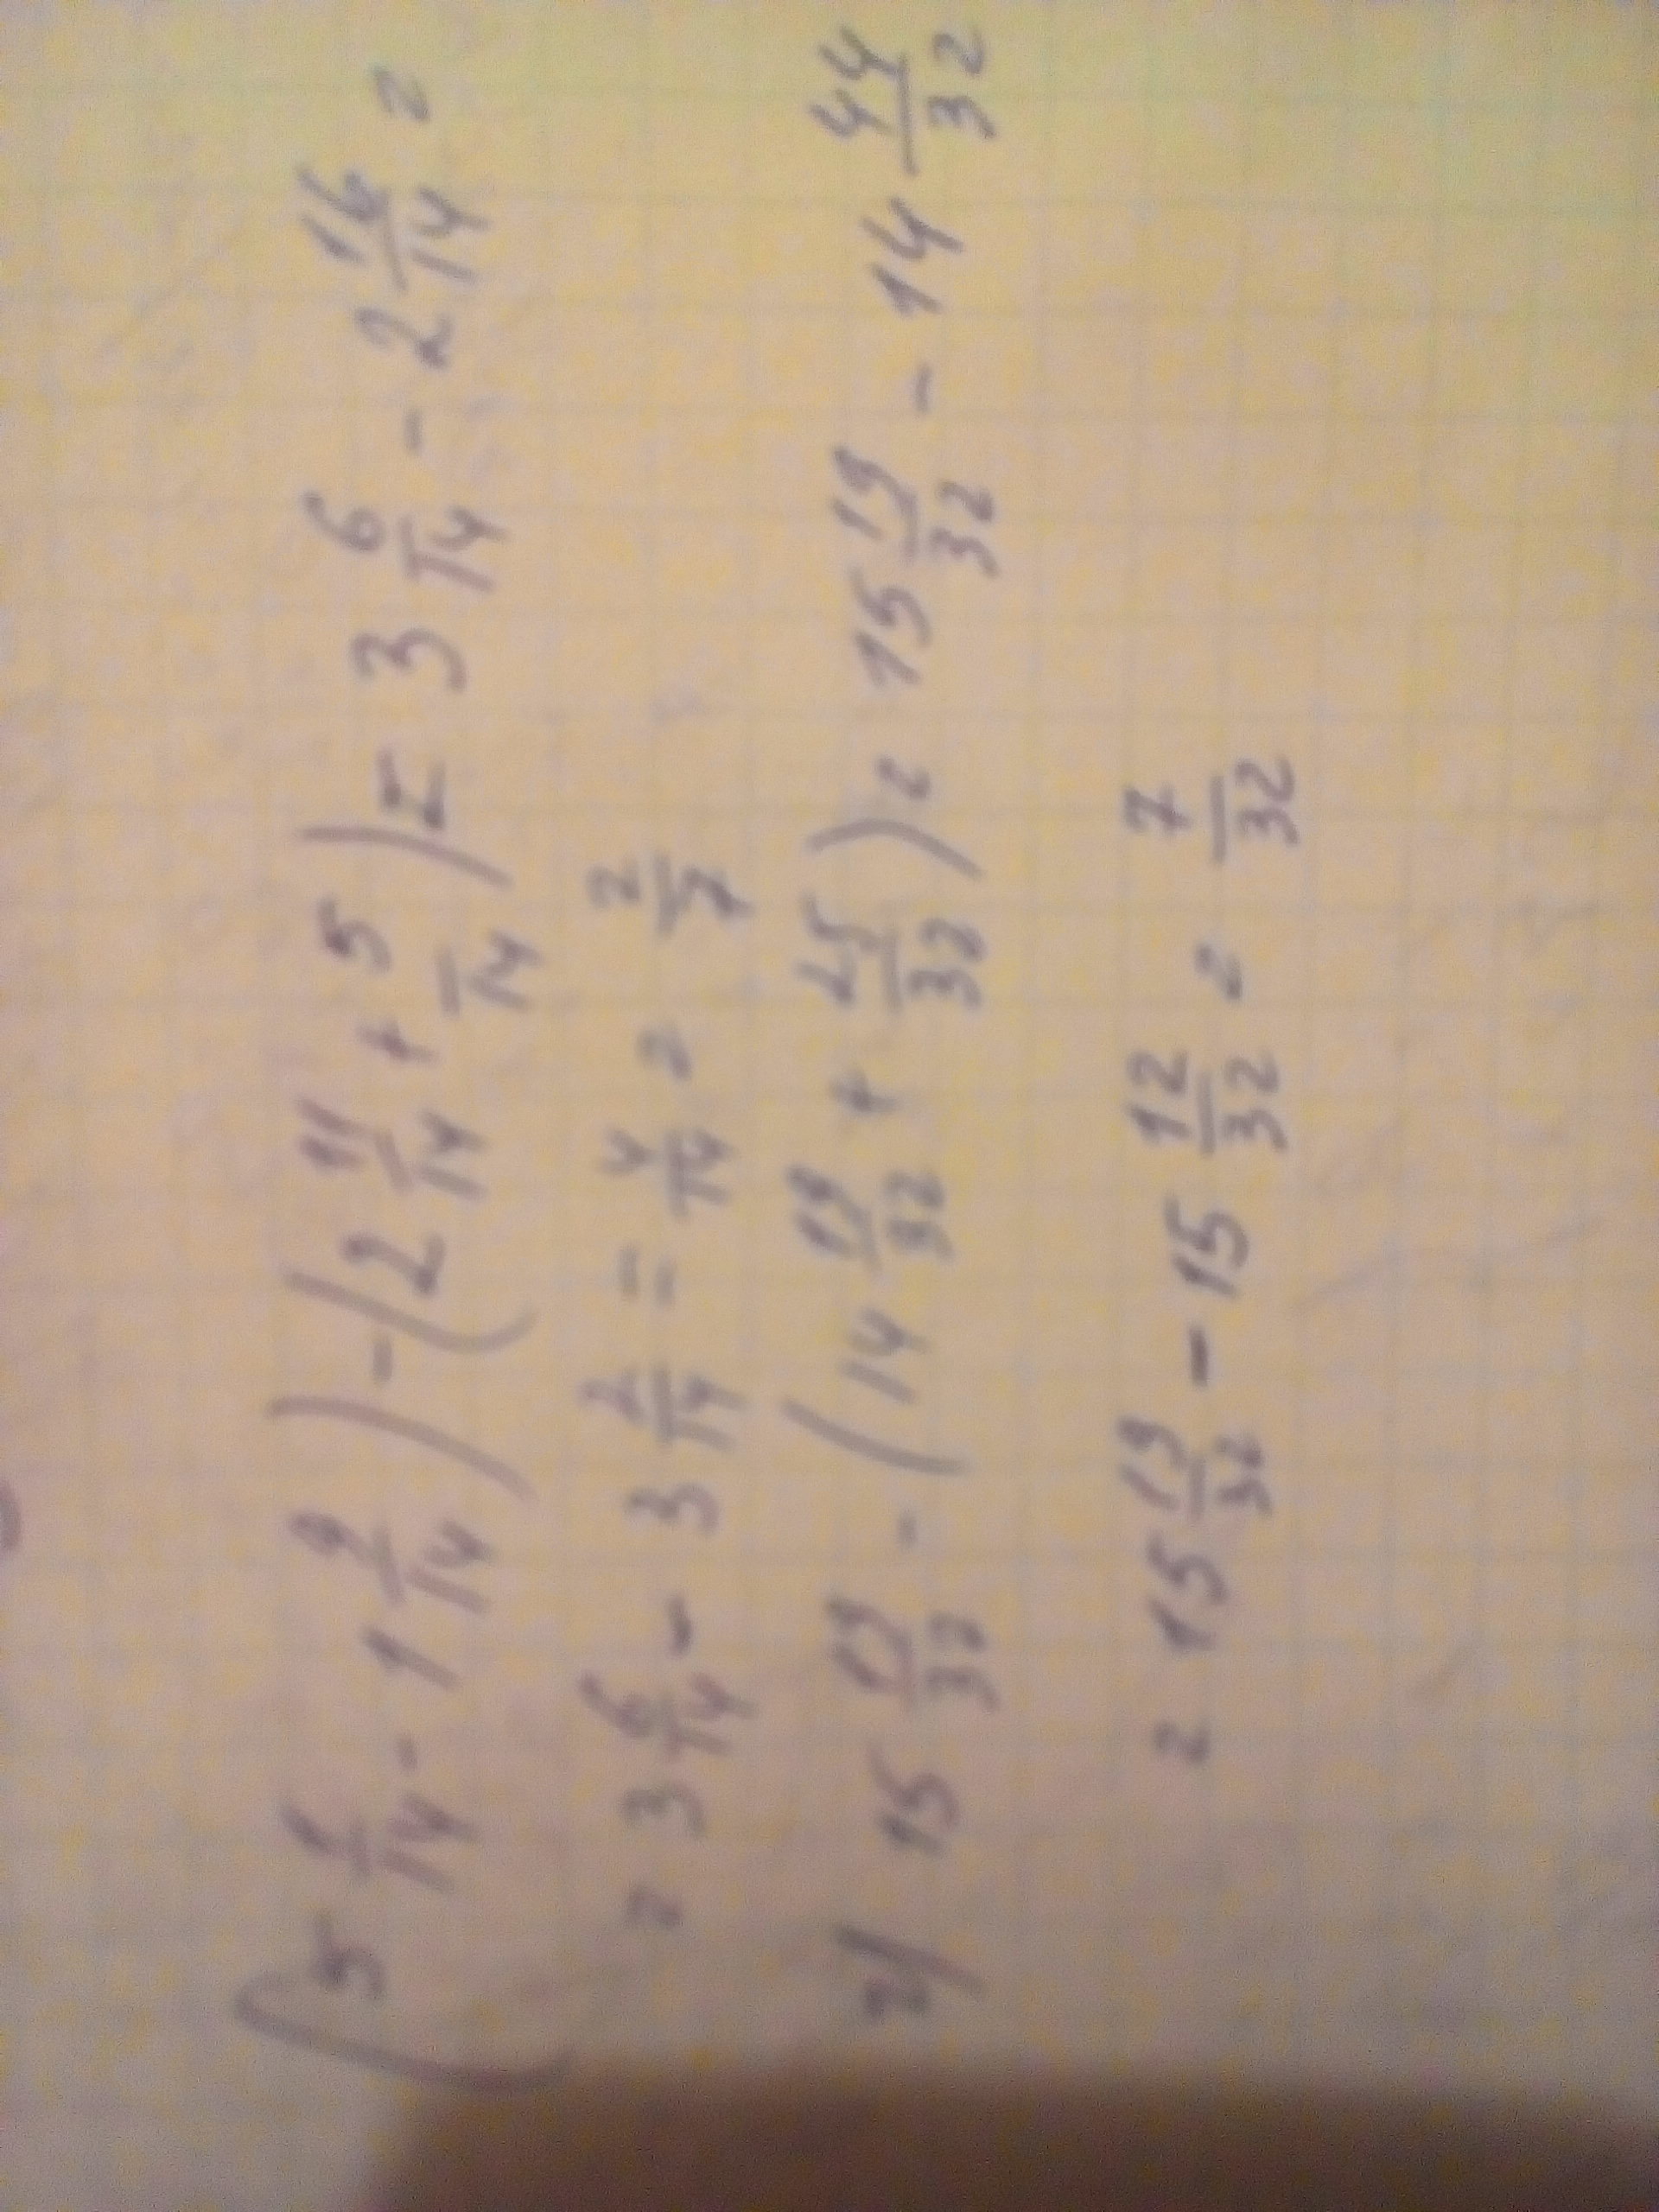 (5 1/14 - 1 9/14) - (2 11/14 + 5/14) = 3 6/14 - 2 16/14 =
= 3 6/14 - 3 2/14 = 4/14 = 2/7
г) 15 19/32 - (14 19/32 + 25/32) = 15 19/32 - 14 44/32
= 15 19/32 - 15 12/32 = 7/32